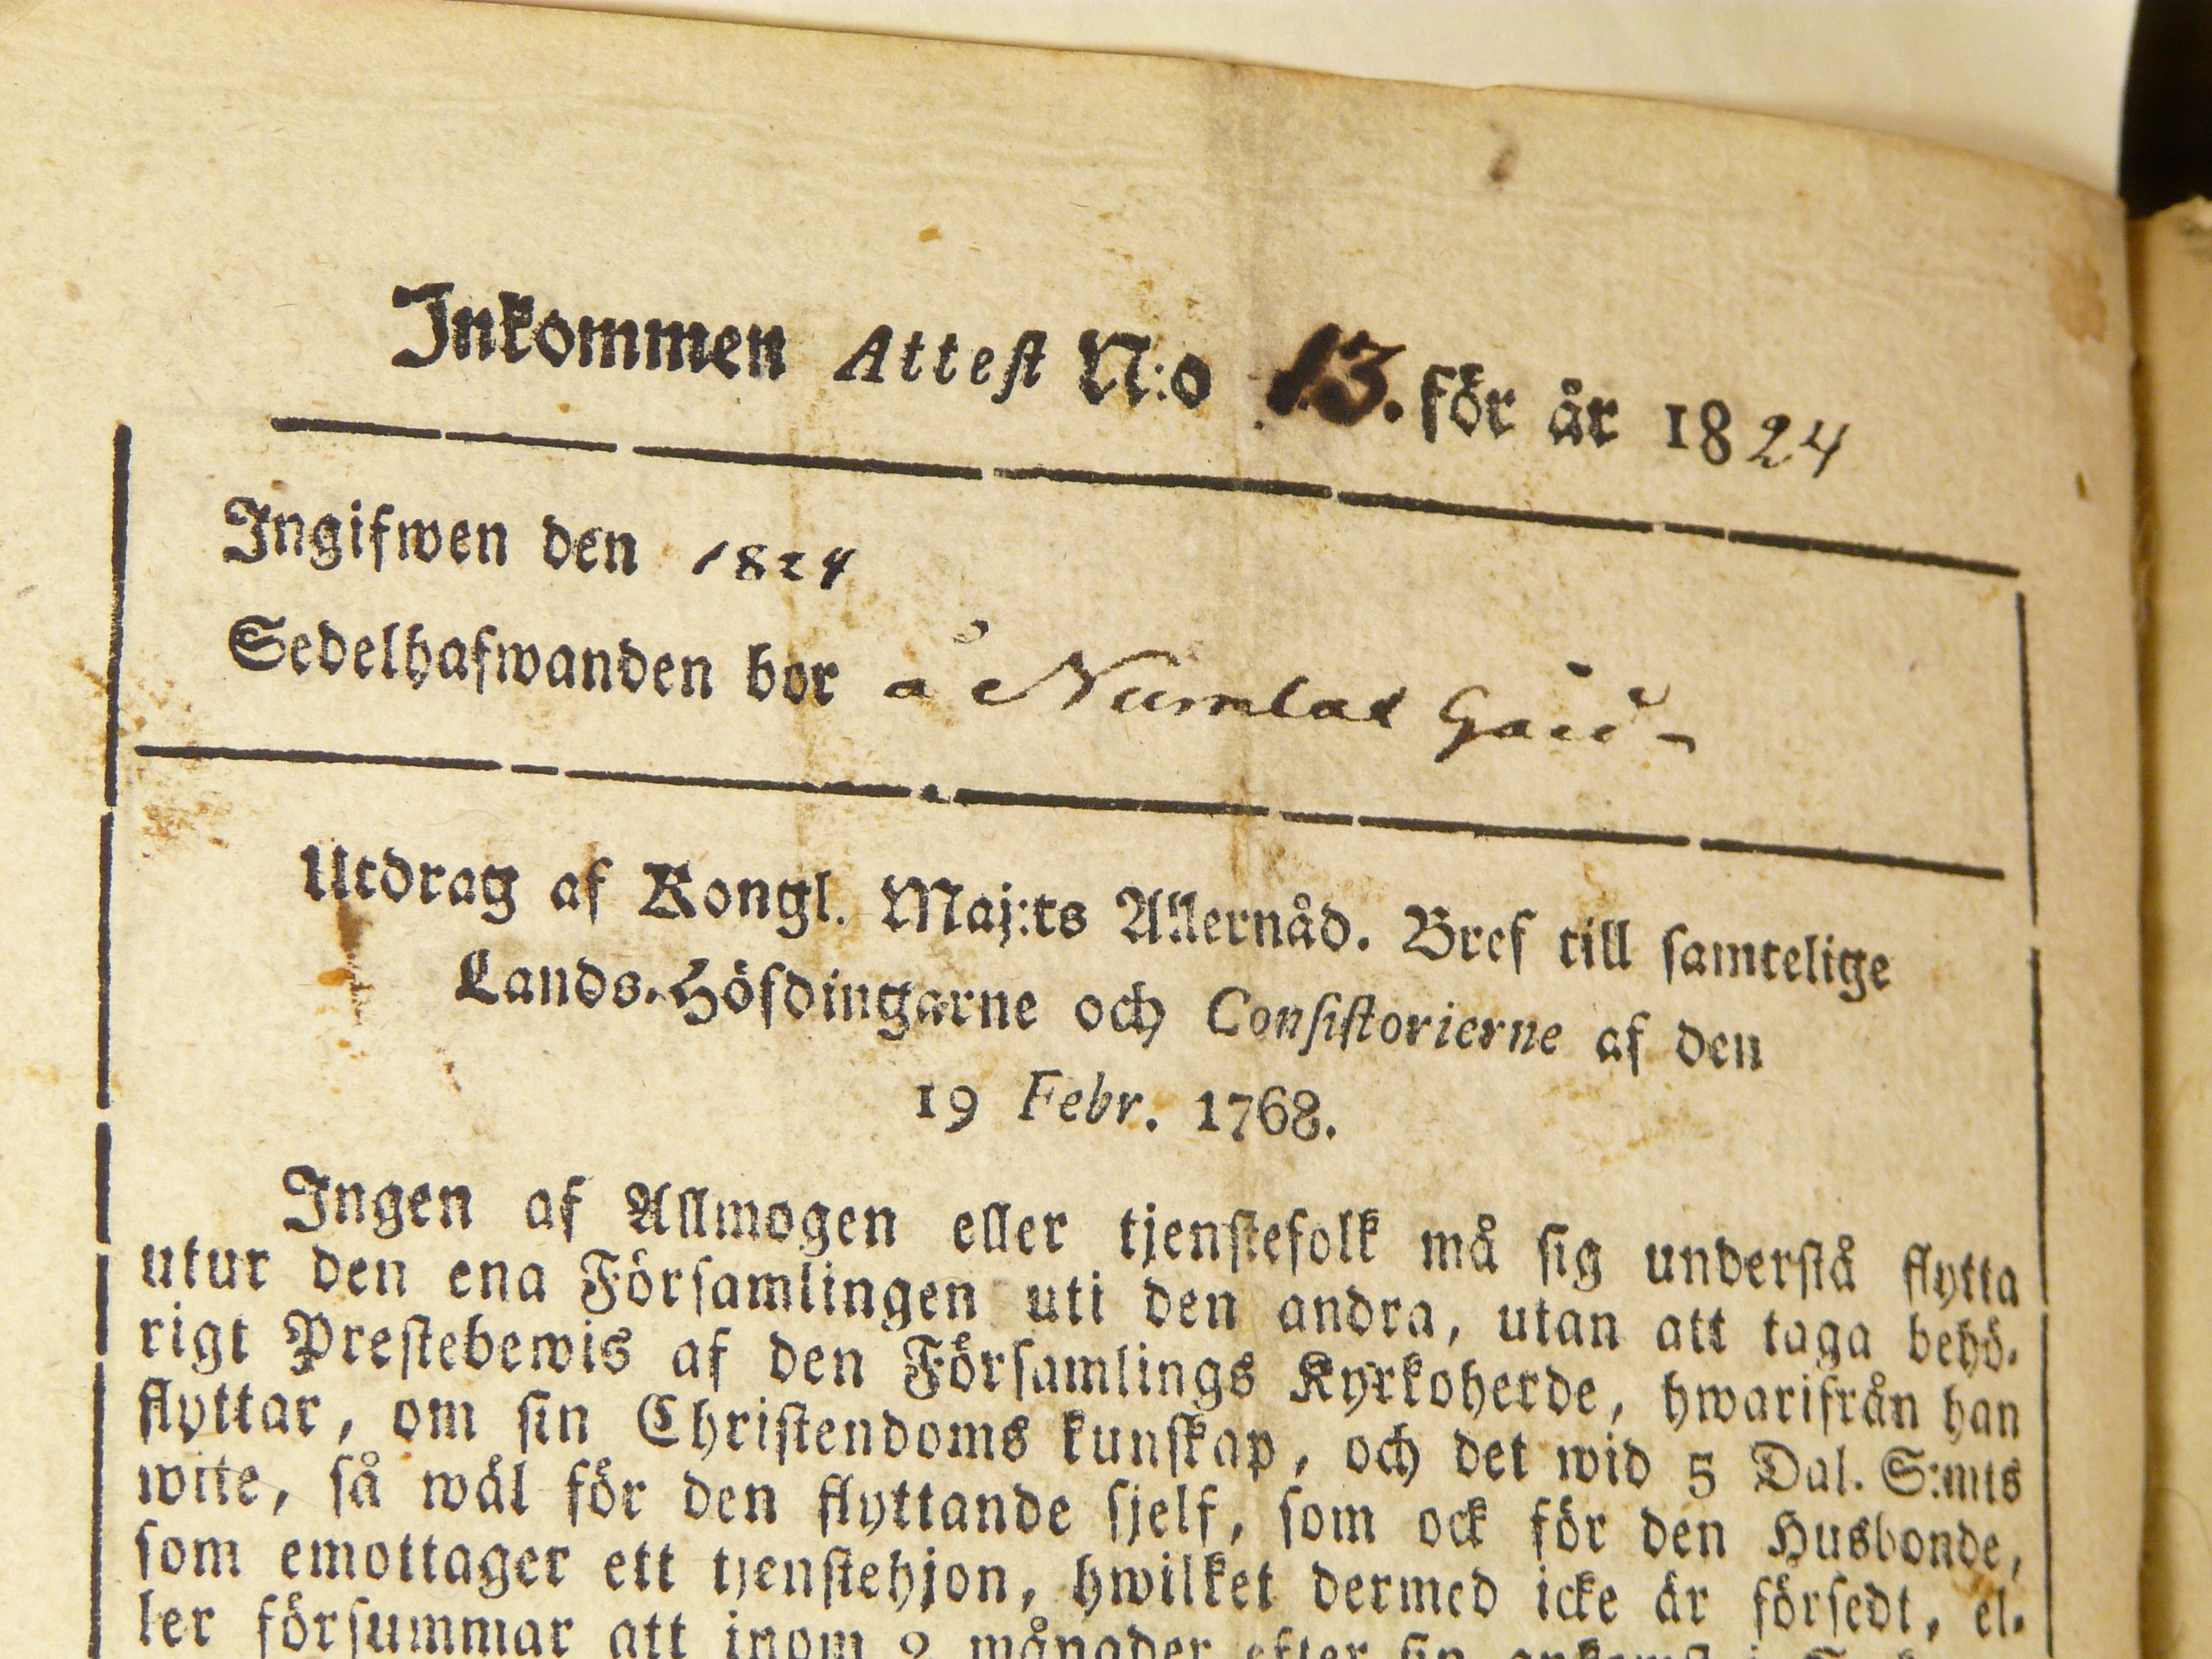 Inkommen Attest N:o 13. för år 1824
Ingifwen den 1824
Sedelhafwanden bor å Numlax Gård
Utdrag af Kongl. Maj:ts Allernåd. Bref till samtelige
Lands-Höfdingarne och Consistorierne af den
19 Febr. 1768.
Ingen af Allmogen eller tjenstefolk må sig understå flytta
utur den ena Församlingen uti den andra, utan att taga behö-
rigt Prestebewis af den Församlings Kyrkoherde, hwarifrån han
flyttar, om sin Christendoms kunskap, och det wid 5 Dal. S:mts
wite, så wäl för den flyttande sjelf, som ock för den Husbonde,
som emottager ett tjenstehjon, hwilket dermed icke är försedt, el-
ler försummar att inom 2 månader efter sin ankomst i